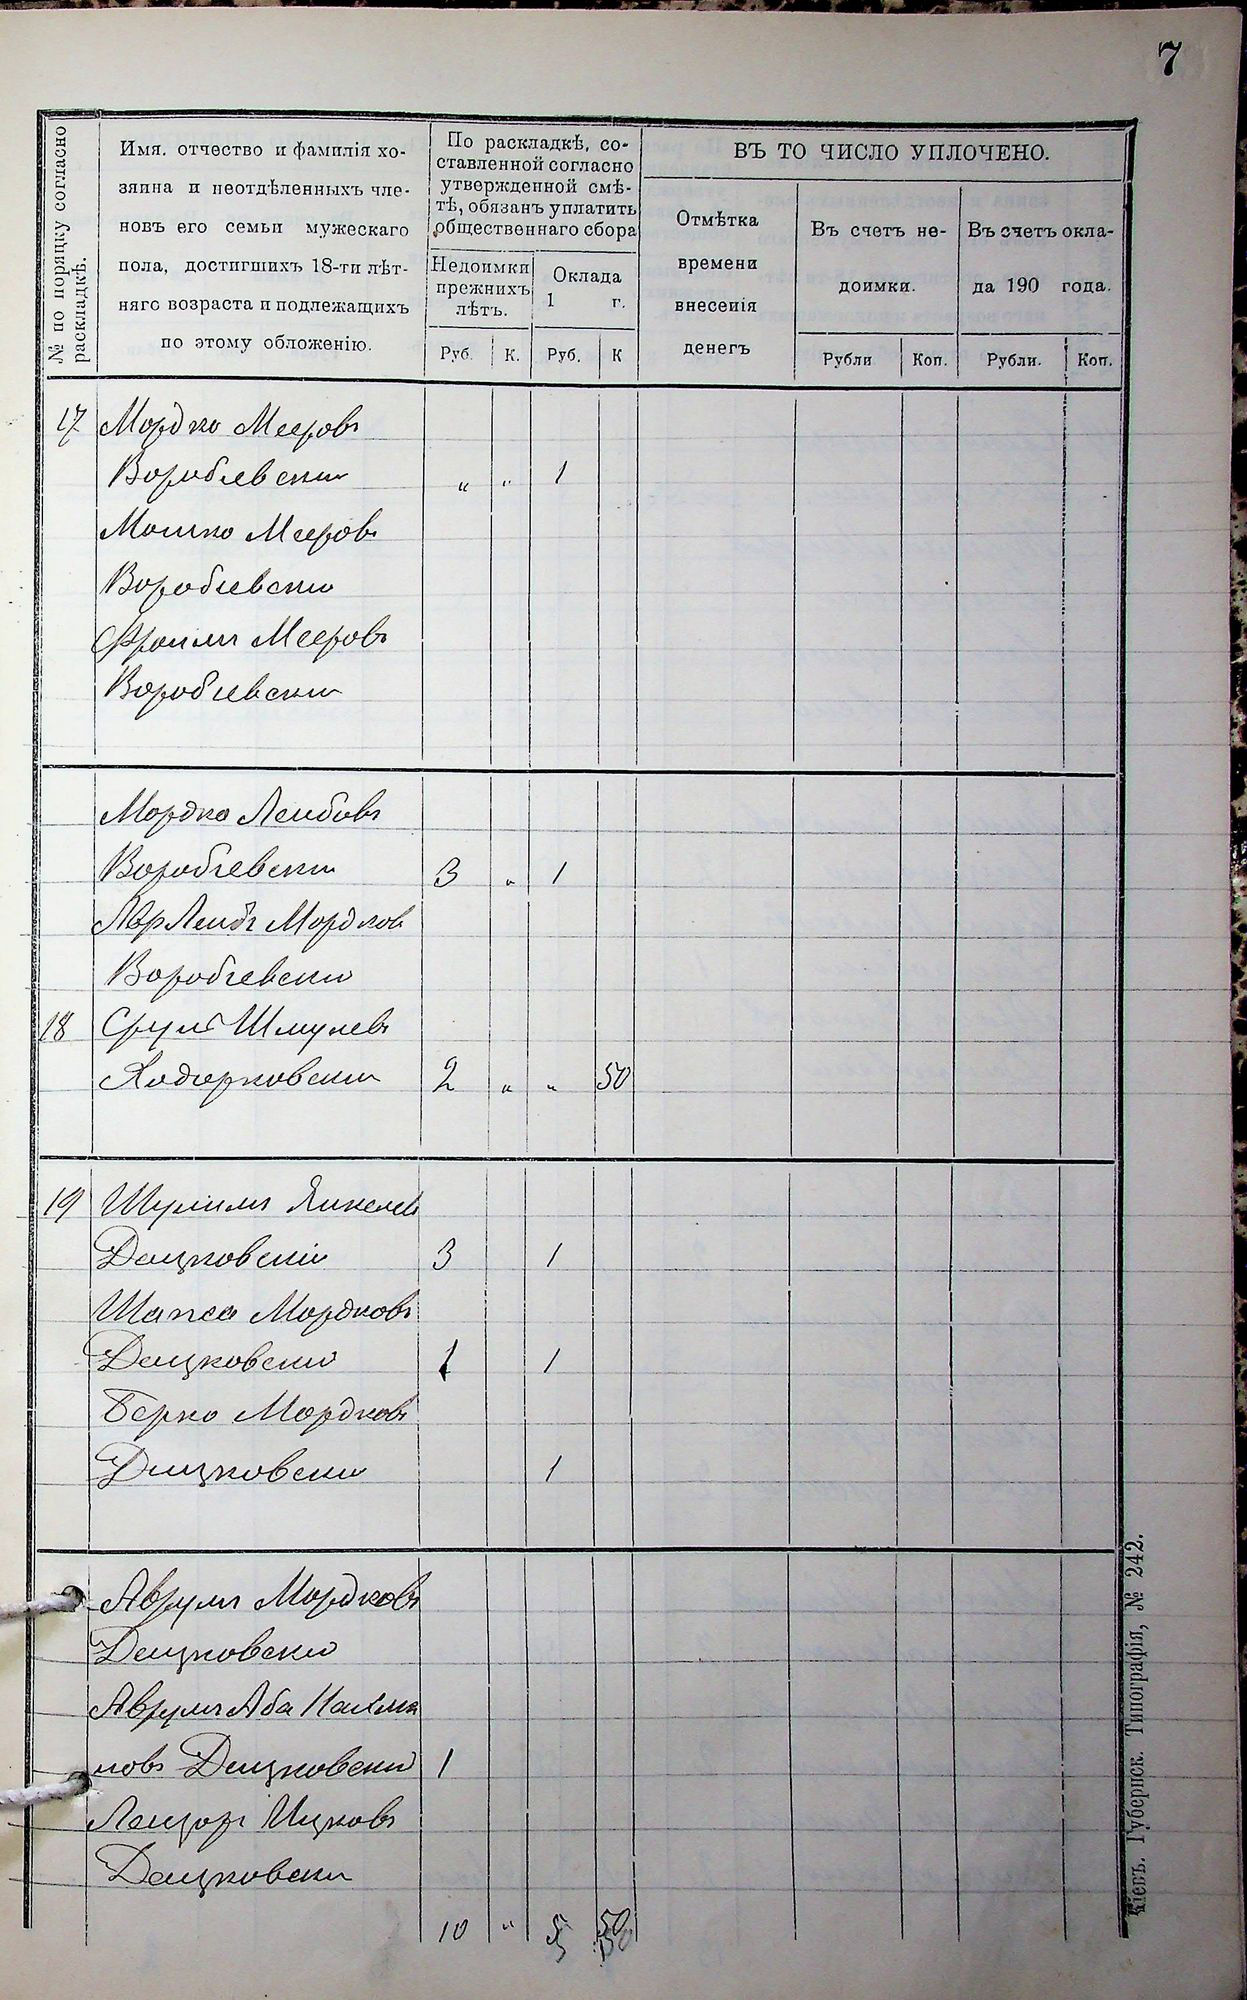 7
№ по поряцку согласно раскладкѣ.
Имя. отчество и фамилія хо-
зяина и неотдѣленныхъ чле-
новъ его семьи мужескаго
пола, достигшихъ 18-ти лѣт-
няго возраста и подлежащихъ
по этому обложенію.
По раскладкѣ, со-
ставленной согласно
утвержденной смѣ-
тѣ, обязанъ уплатить
общественнаго сбора
Недоимки
прежнихъ
лѣтъ.
Оклада
1 г.
Руб. К. Руб. К
ВЪ ТО ЧИСЛО УПЛОЧЕНО.
Отмѣтка
времени
внесенія
денегъ
Въ счетъ не-
доимки.
Рубли Коп.
Въ счетъ окла-
да 190 года.
Рубли. Коп.
17 Мордко Мееровъ
Воробіевски „ „ 1
Мошко Мееровъ
Воробіевски
Фроимъ Мееровъ
Воробіевски
Мордко Лейбовъ
Воробіевски 3 „ 1
Авр Лейбъ Мордков
Воробіевски
18 Сруль Шмулевъ
Ходорковски 2 „ „ 50
19 Шулимъ Янкелев
Дацковскій 3 1
Шапса Мордковъ
Дацковски 1 1
Берко Мордковъ
Дацковски 1
Аврумъ Мордковъ
Дацковски
Аврумъ Аба Нахма
новъ Дацковски 1
Лейзоръ Ицковъ
Дацковски
10 „ 5 50
Кіевъ. Губернск. Типографія, № 242.